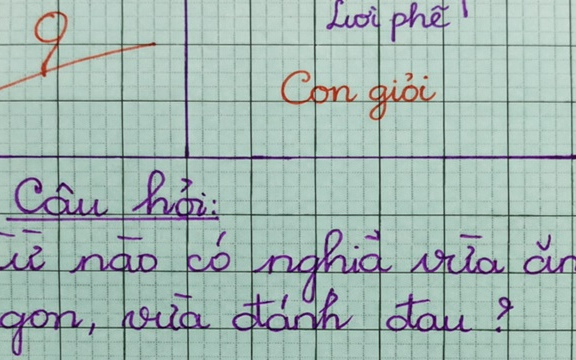 9
Lười phê
Con giỏi
Câu hỏi:
từ nào có nghĩa vừa ăn
gon, vừa đánh đau ?